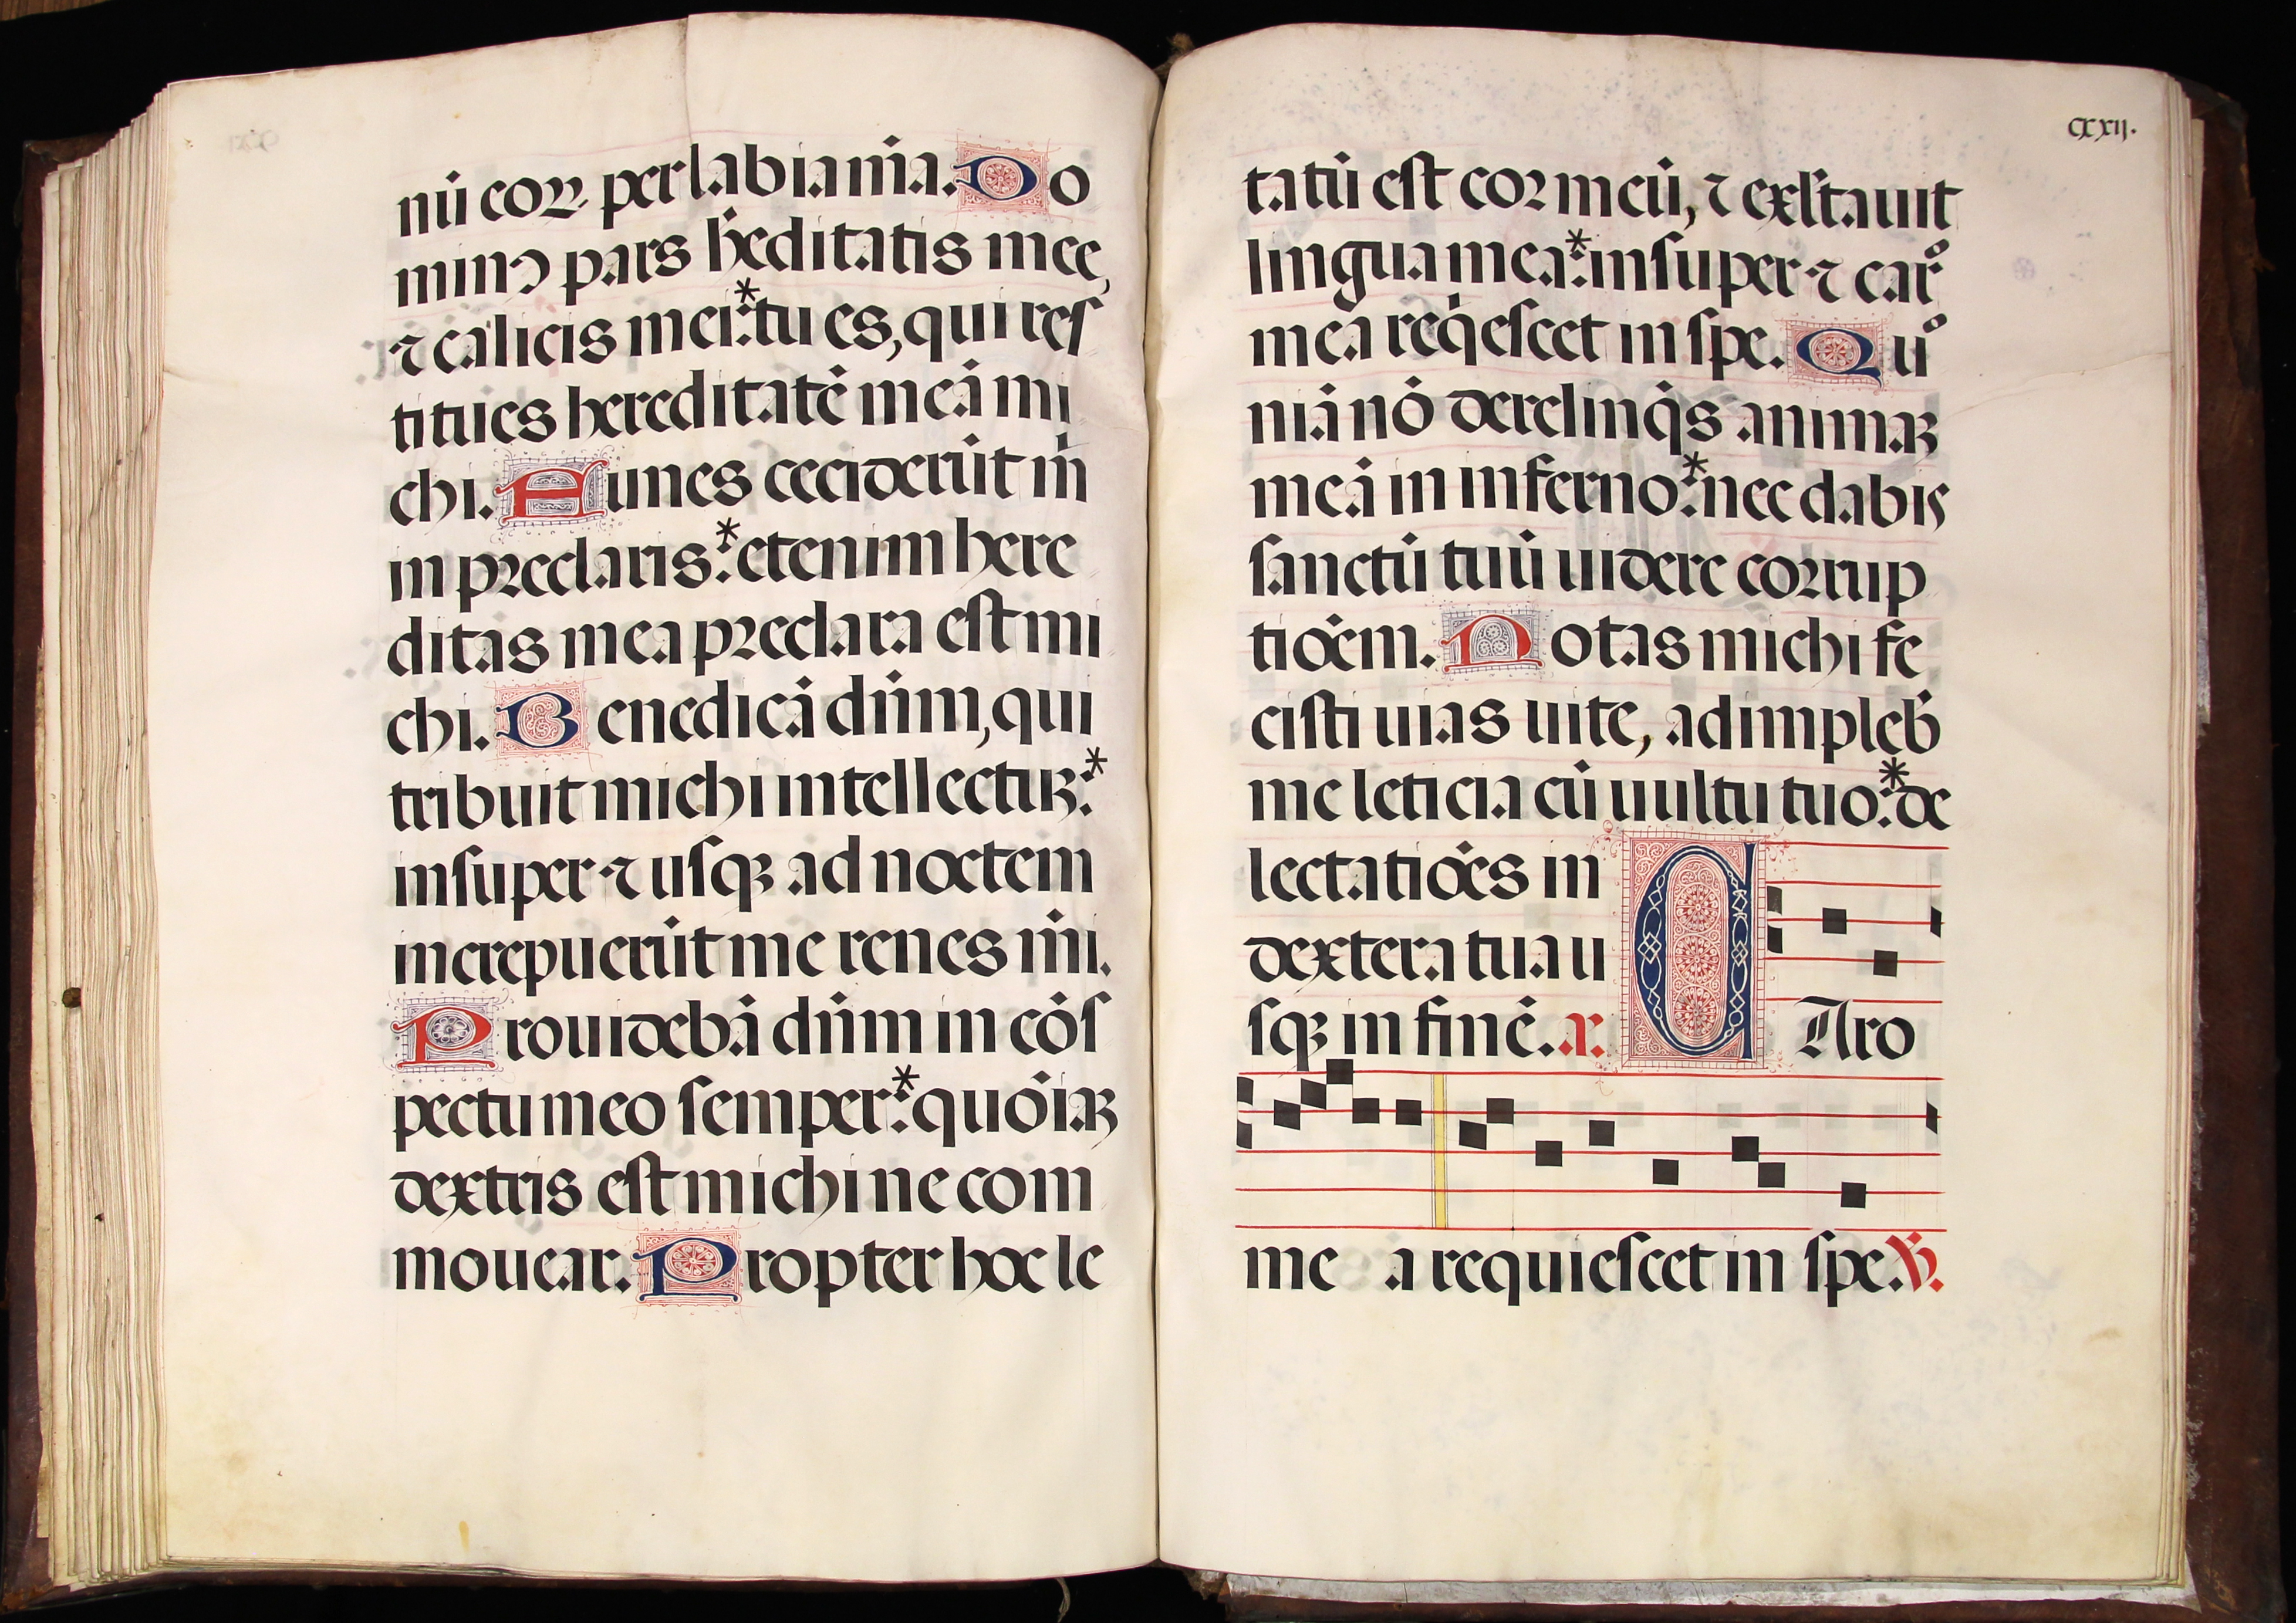 nū coꝝ per labia m̄a. Do
minꝰ pars h̄editatis mee,
⁊ calicis mei:* tu es, qui res
titues hereditatē meā mi
chi. Funes ceciderūt m̄
in preclaris:* etenim here
ditas mea preclara est mi
chi. Benedicā dn̄m, qui
tribuit michi intellectuꝫ:*
insuper ⁊ usqꝫ ad noctem
increpuerūt me renes m̄i.
Prouidebā dn̄m in cōs
pectu meo semper:* quōiaꝫ
dextris est michi ne com
mouear. Propter hoc le
cxxij.
tatū est cor meū, ⁊ exl̄tauit
lingua mea:* insuper ⁊ caro
mea reqiescet in spe. Quo
niā nō derelinqis animaꝫ
meā in inferno:* nec dabis
sanctū tuū uidere corrup
tiōem. Notas michi fe
cisti uias uite, adimpleb̄
me leticia cū uultu tuo:* de
lectatiōes in
dextera tua u
sqꝫ in finē. a. C Aro
me a requiescet in spe. ℣.